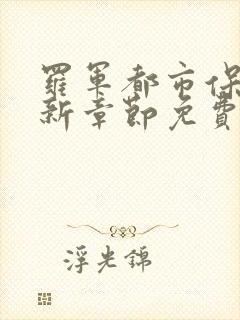 羅軍都市保
新章節免費
浮光錦